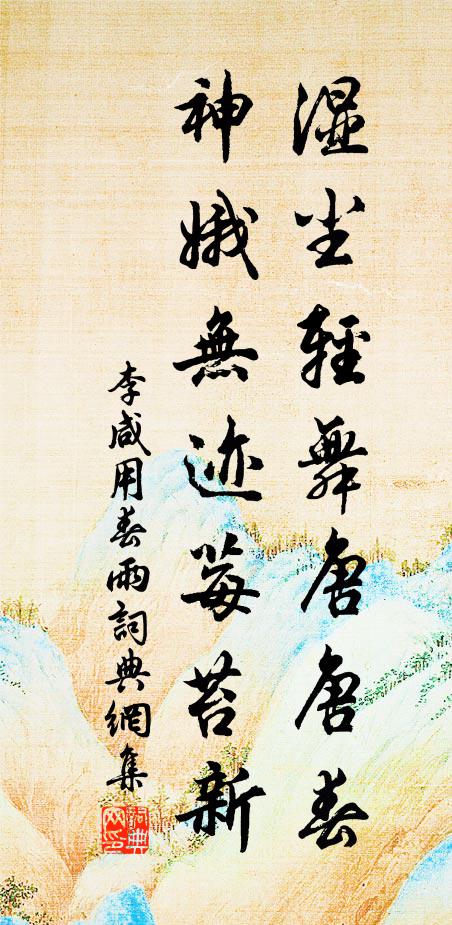 湿尘轻舞唐唐春
神娥無迹莓苔新
李咸用春雨詞典網集
詞典网印